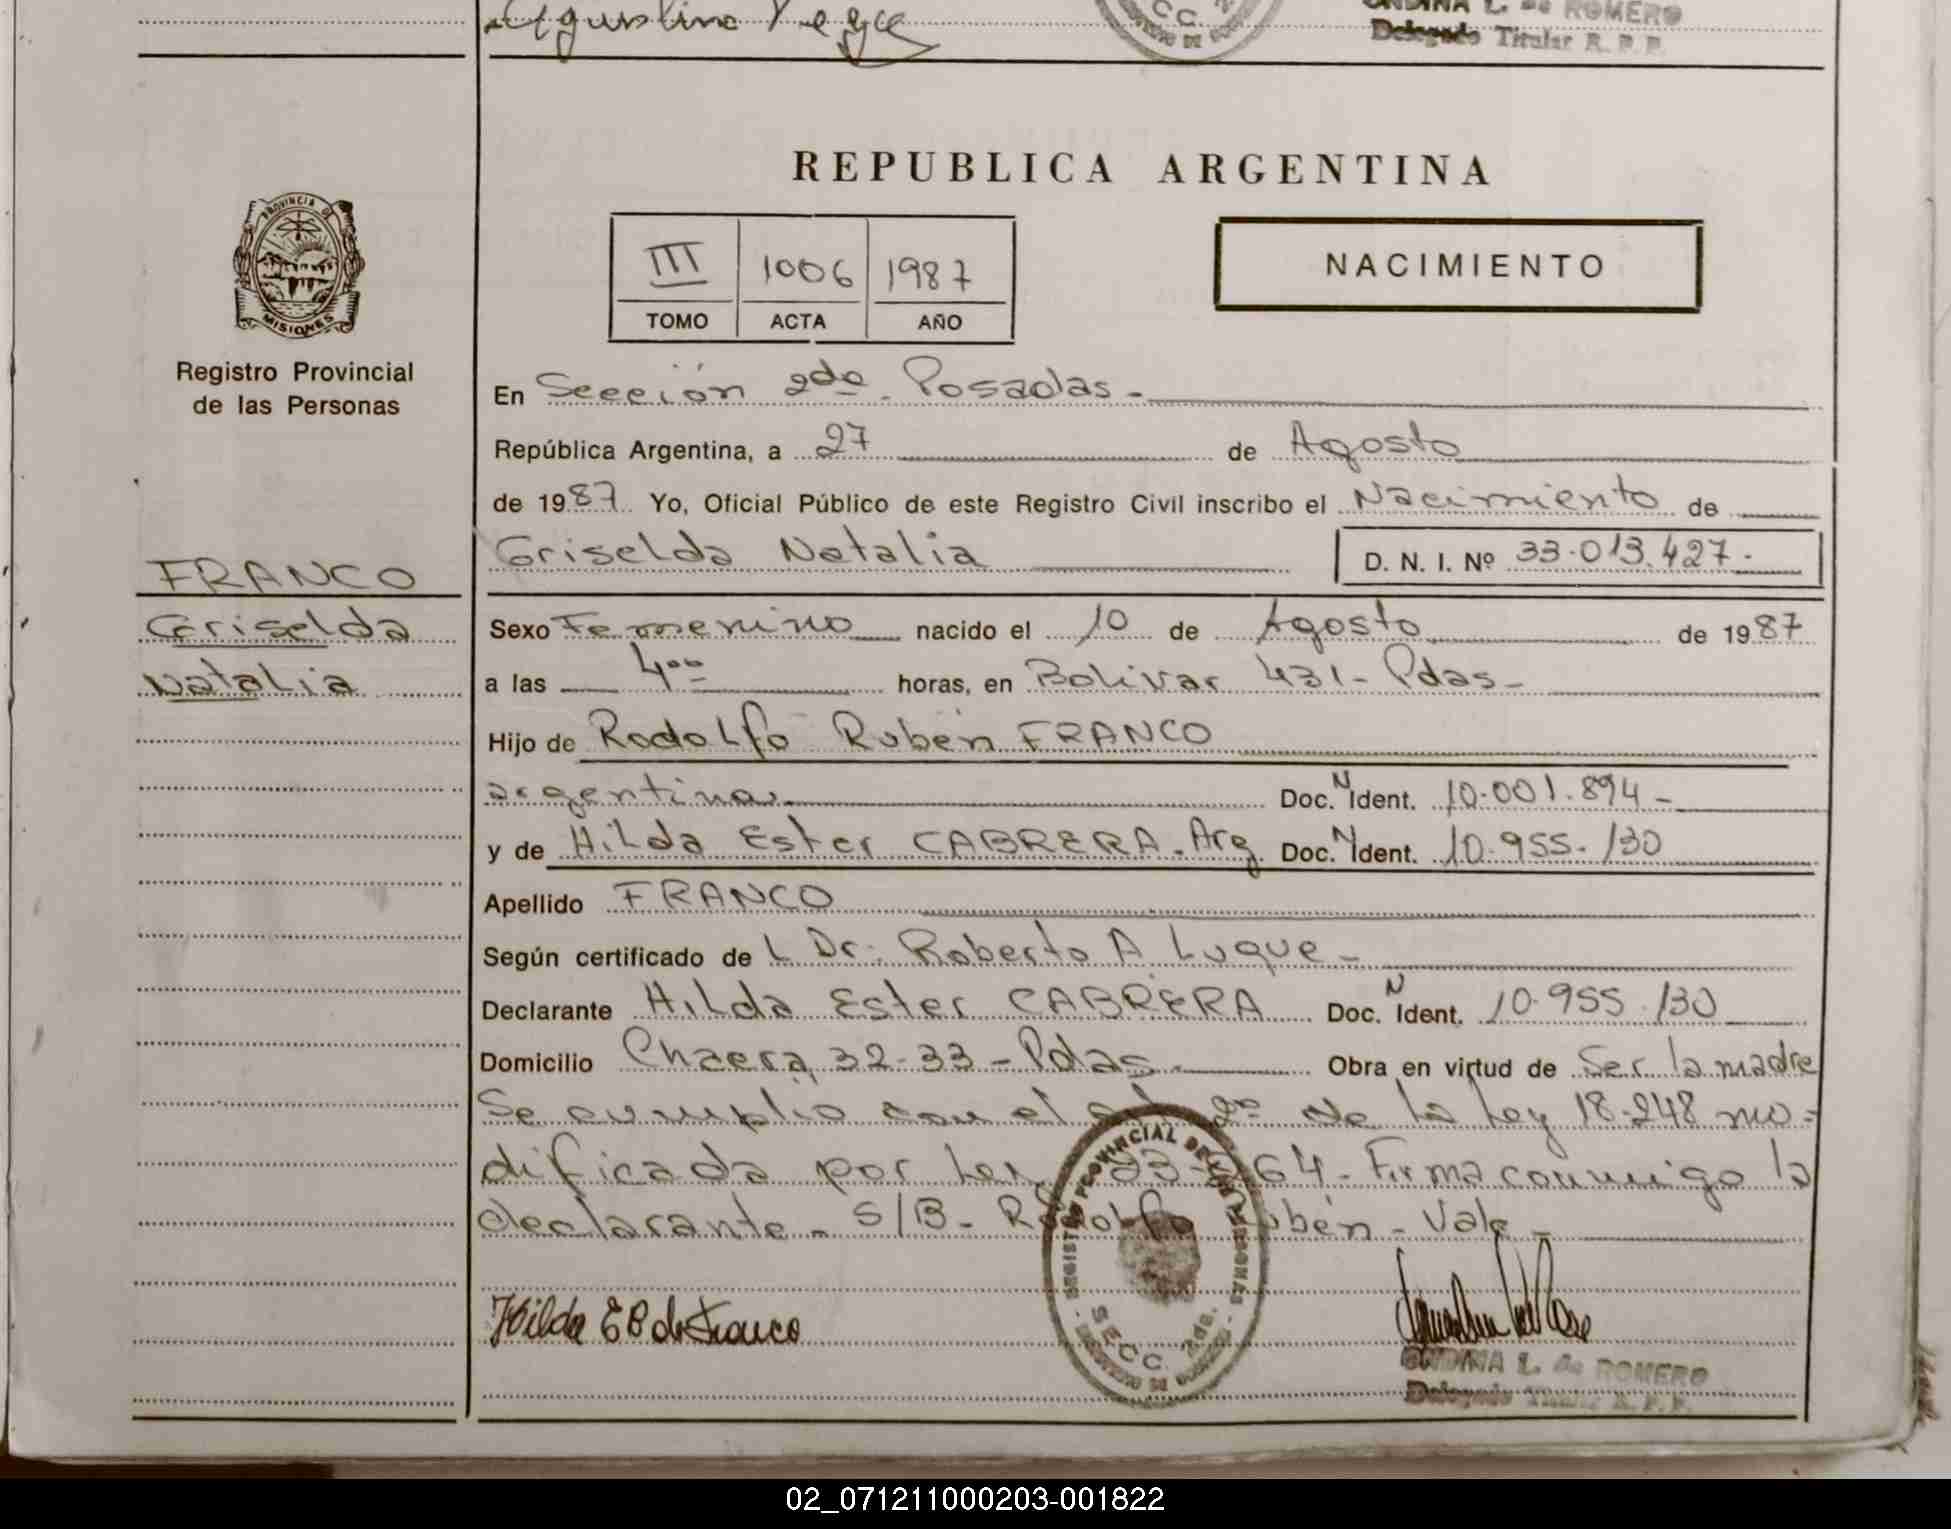 Agustina Vega
ONDINA L. de ROMERO
Delegado Titular R. P. P.
REPUBLICA ARGENTINA
PROVINCIA DE
MISIONES
III 1006 1987
TOMO ACTA AÑO
NACIMIENTO
Registro Provincial
de las Personas
En Sección 2da. Posadas.-
República Argentina, a 27 de Agosto
de 1987 Yo, Oficial Público de este Registro Civil inscribo el Nacimiento de
Griselda Natalia D. N. I. Nº 33.013.427.-
FRANCO
Griselda
Natalia
Sexo Femenino nacido el 10 de Agosto de 1987
a las 4ºº horas, en Bolivar 431- Pdas-
Hijo de Rodolfo Rubén FRANCO
argentino. Doc. N Ident. 10.001.894-
y de Hilda Ester CABRERA. Arg. Doc. N Ident. 10.955.130
Apellido FRANCO
Según certificado de L Dr. Roberto A Luque-
Declarante Hilda Ester CABRERA Doc. N Ident. 10.955.130
Domicilio Chacra 32-33-Pdas. Obra en virtud de Ser la madre
Se cumplió con el 2º de la Ley 18.248 mo=
dificada por Ley 23- 64- Firma conmigo la
declarante- S/B- Rodolfo Rubén- Vale-
REGISTRO PROVINCIAL DE LAS PERSONAS
SECC. 2da.
Hilda E C de Franco
ONDINA L. de ROMERO
Delegado Titular R. P. P.
02_071211000203-001822